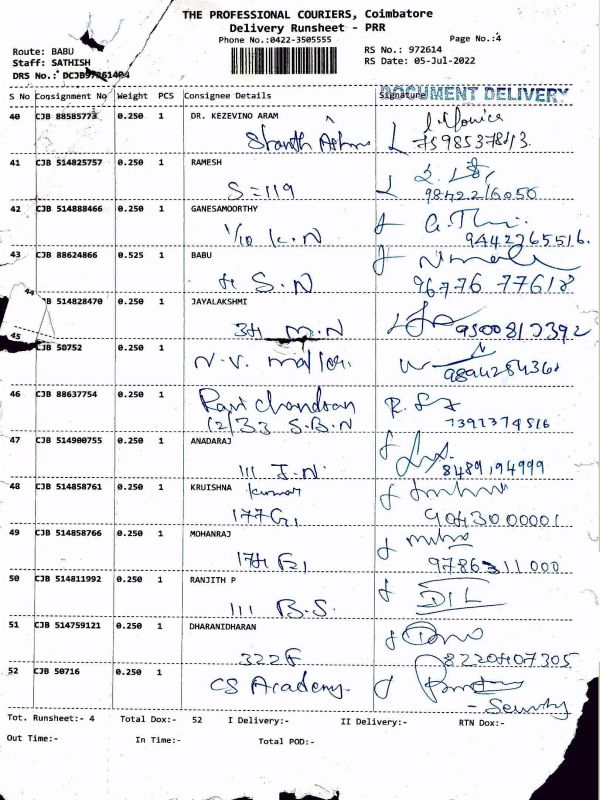 THE PROFESSIONAL COURIERS, Coimbatore
Delivery Runsheet - PRR
Phone No.:0422-3505555
Page No.:4
Route: BABU
RS No.: 972614
Staff: SATHISH
RS Date: 05-Jul-2022
DRS No.: DCJB97261404
S No Consignment No Weight PCS Consignee Details Signature
DOCUMENT DELIVERY
40 CJB 88585773 0.250 1 DR. KEZEVINO ARAM
41 CJB 514825757 0.250 1 RAMESH
S=119
9842216050
42 CJB 514888466 0.250 1 GANESAMOORTHY
1/10 K.N
9442265516.
43 CJB 88624866 0.525 1 BABU
S.N
96776 77618
44 CJB 514828470 0.250 1 JAYALAKSHMI
M.N
45 CJB 50752 0.250 1
N.V.
46 CJB 88637754 0.250 1 Ravi Chandran
12/33 S.B.N
47 CJB 514900755 0.250 1 ANADARAJ
111 J.N.
8489194999
48 CJB 514858761 0.250 1 KRUISHNA
kumar
177G1
9043000001
49 CJB 514858766 0.250 1 MOHANRAJ
9786311000
50 CJB 514811992 0.250 1 RANJITH P
111 B.S.
51 CJB 514759121 0.250 1 DHARANIDHARAN
8220407305
52 CJB 50716 0.250 1
CS Academy
- Security
Tot. Runsheet:- 4 Total Dox:- 52 I Delivery:- II Delivery:- RTN Dox:-
Out Time:- In Time:- Total POD:-